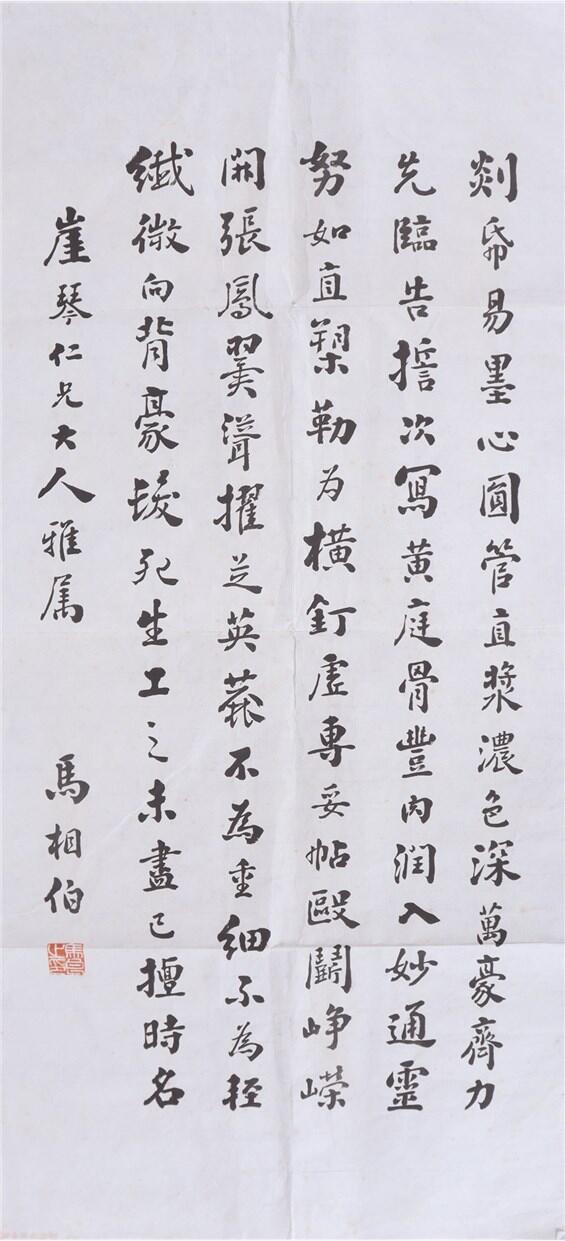 剡帋易墨心圓管直漿濃色深萬豪齊力
先臨告誓次寫黃庭骨豐肉潤入妙通靈
努如直槊勒為橫釘虛專妥帖毆鬭崢嶸
開張鳳翼聳擢芝英麤不為重細不為輕
纖微向背豪髮死生工之未盡已擅時名
崖琴仁兄大人雅属
馬相伯